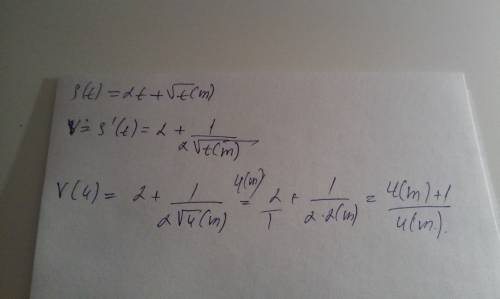 S(t) = 2t + √t(m)
V = S'(t) = 2 + 1/(2√t(m))
V(4) = 2 + 1/(2√4(m)) = 4(m) 2/1 + 1/(2·2(m)) = (4(m)+1)/(4(m)).